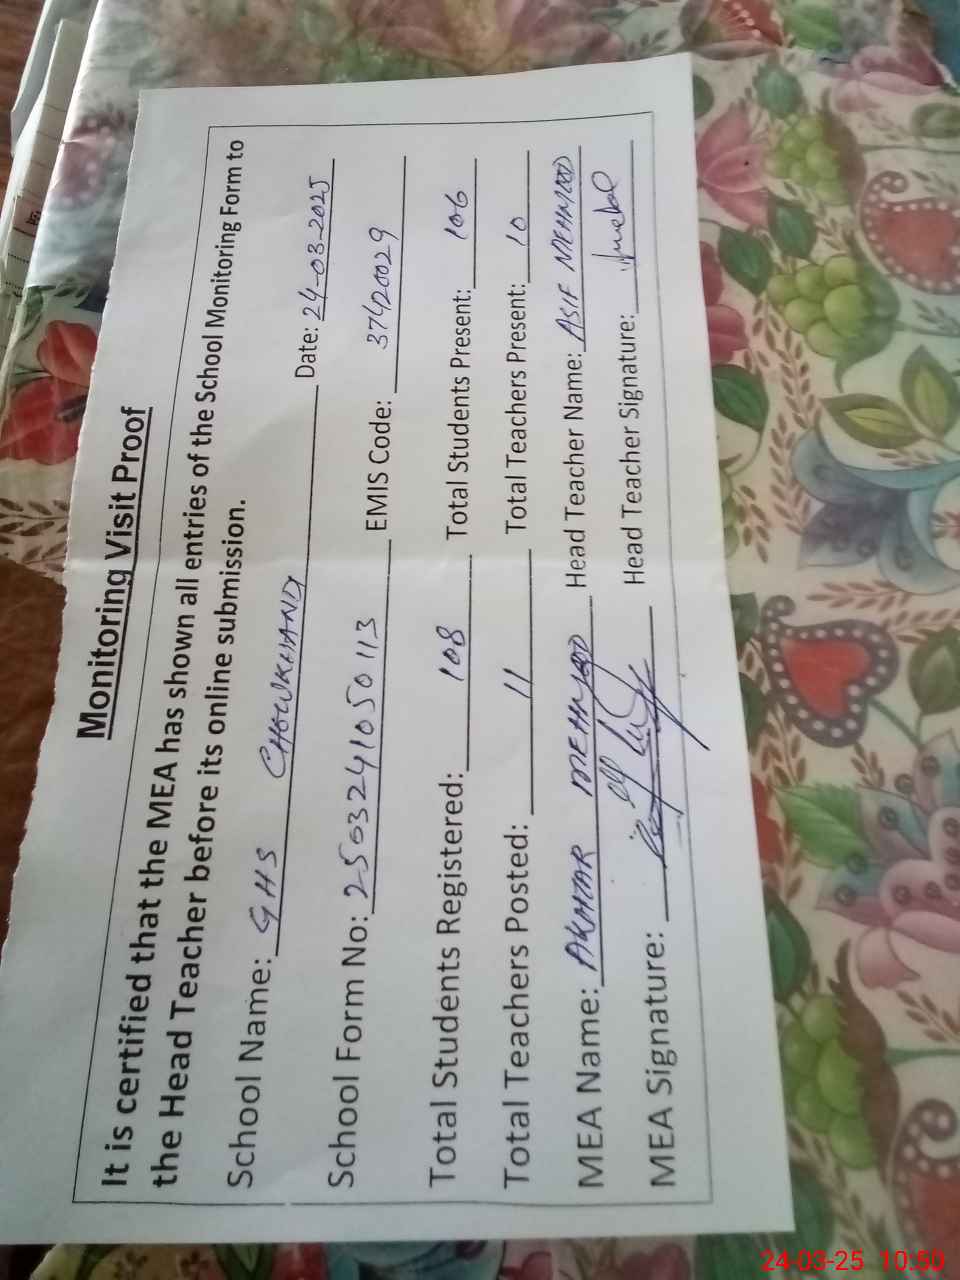 Monitoring Visit Proof
It is certified that the MEA has shown all entries of the School Monitoring Form to
the Head Teacher before its online submission.
School Name: GHS CHOWKHAND Date: 24-03-2025
School Form No: 2503241050113 EMIS Code: 37420029
Total Students Registered: 108 Total Students Present: 106
Total Teachers Posted: 11 Total Teachers Present: 10
MEA Name: AKHTAR MEHMOOD Head Teacher Name: ASIF MEHMOOD
MEA Signature: Head Teacher Signature:
24-03-25 10:50